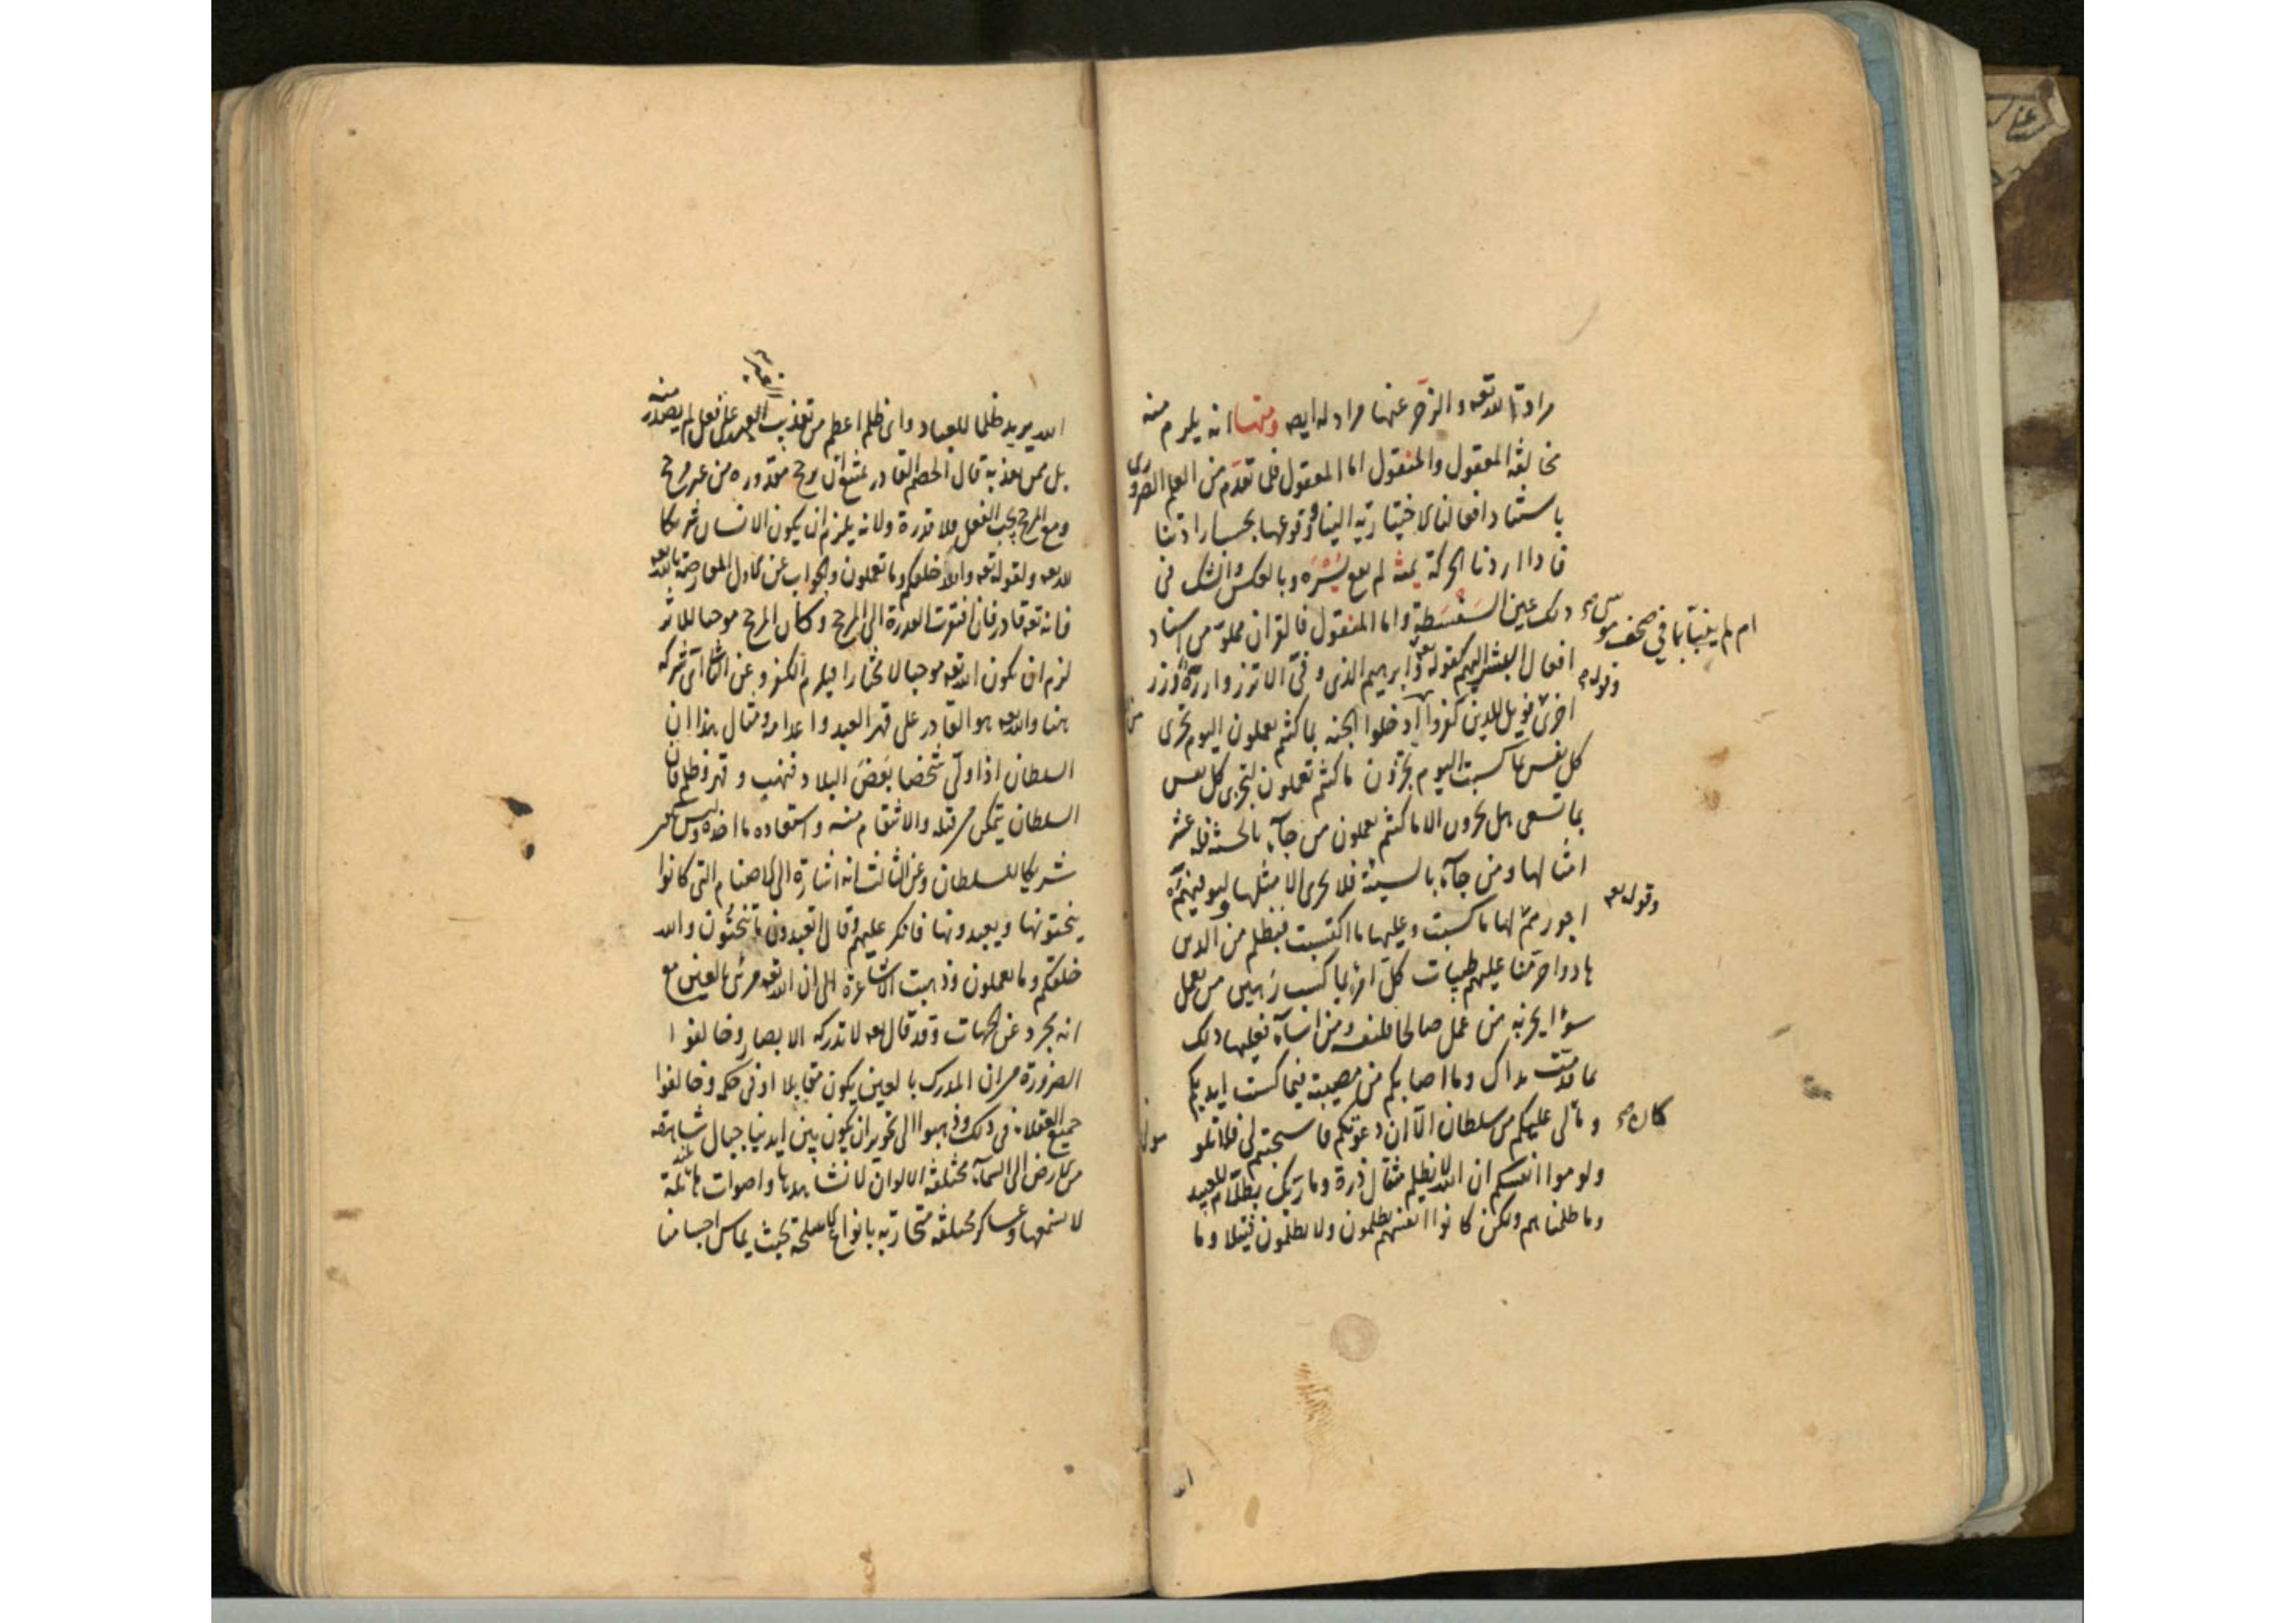 مرادة لله تعه والزجر عنها مراد له ايضه ومنها انه يلزم منه
مخالفة المعقول والمنقول اما المعقول فلما تقدم من العلم الضرورى
باستناد افعالنا الاختيارية الينا ووقوعها بحسب ارادتنا
فاذا اردنا الحركة يمنة لم يقع يسرة وبالعكس والشك فى
ذلك عين السفسطة واما المنقول فالقران مملو من اسناد
ام لم ينبأ بما فى صحف موسى
افعال البشر اليهم كقوله تعه وابرهيم الذى وفى الا تزر وازرة وزر
وقوله
اخرى فويل للذين كفروا ادخلوا الجنه بما كنتم تعملون اليوم تجزى
كل نفس بما كسبت اليوم تجزون ما كنتم تعملون لتجزى كل نفس
بما تسعى هل تجزون الا ما كنتم تعملون من جآء بالحسنة فله عشر
امثالها ومن جآء بالسيئة فلا يجزى الا مثلها ليوفيهم
وقوله تعه
اجورهم لها ما كسبت وعليها ما اكتسبت فبظلم من الذين
هادوا حرمنا عليهم طيبات كل امرئ بما كسب رهين من يعمل
سوءا يجز به من عمل صالحا فلنفسه ومن اسآء فعليها ذلك
بما قدمت يداك وما اصابكم من مصيبة فبما كسبت ايديكم
وما كان لى عليكم من سلطان الا ان دعوتكم فاستجبتم لى فلا تلومونى
ولوموا انفسكم ان الله لا يظلم مثقال ذرة وما ربك بظلام للعبيد
وما ظلمناهم ولكن كانوا انفسهم يظلمون ولا يظلمون فتيلا وما
الله
الله يريد ظلما للعباد واى ظلم اعظم من تعذيب العبد على فعل لم يصدر منه
بل ممن يعذبه قال الخصم القادر يمتنع ان يرجح مقدوره من غير مرجح
ومع المرجح يجب الفعل فلا قدرة ولانه يلزم ان يكون الانسان شريكا
لله تعه ولقوله تعه والله خلقكم وما تعملون والجواب عن الاول المعارضة بالله تعه
فانه تعه قادر فان افتقرت القدرة الى المرجح وكان المرجح موجبا للاثر
لزم ان يكون الله تعه موجبا لا مختارا فيلزم الكفر وعن الثانى اى شركة
هنا والله تعه هو القادر على قهر العبد واعدامه ومثال هذا ان
السلطان اذا ولى شخصا بعض البلاد فنهب وقهر وظلم فان
السلطان يتمكن من قتله والانتقام منه واستعاده ما اخذه وليس
شريكا للسلطان وعن الثالث انه اشارة الى الاصنام التى كانوا
ينحتونها ويعبدونها فانكر عليهم وقال اتعبدون ما تنحتون والله
خلقكم وما تعملون وذهبت الاشاعرة الى ان الله تعه مرئى بالعين مع
انه مجرد عن الجهات وقد قال تعه لا تدركه الابصار وخالفوا
الضرورة من ان المدرك بالعين يكون مقابلا او فى حكمه وخالفوا
جميع العقلاء فى ذلك وذهبوا الى تجويز ان يكون بين ايدينا جبال شاهقه
من الارض الى السمآء مختلفة الالوان لا نشاهدها واصوات هائلة
لا نسمعها وعساكر مختلفة متحاربة بانواع الاسلحة بحيث يماس اجسامنا